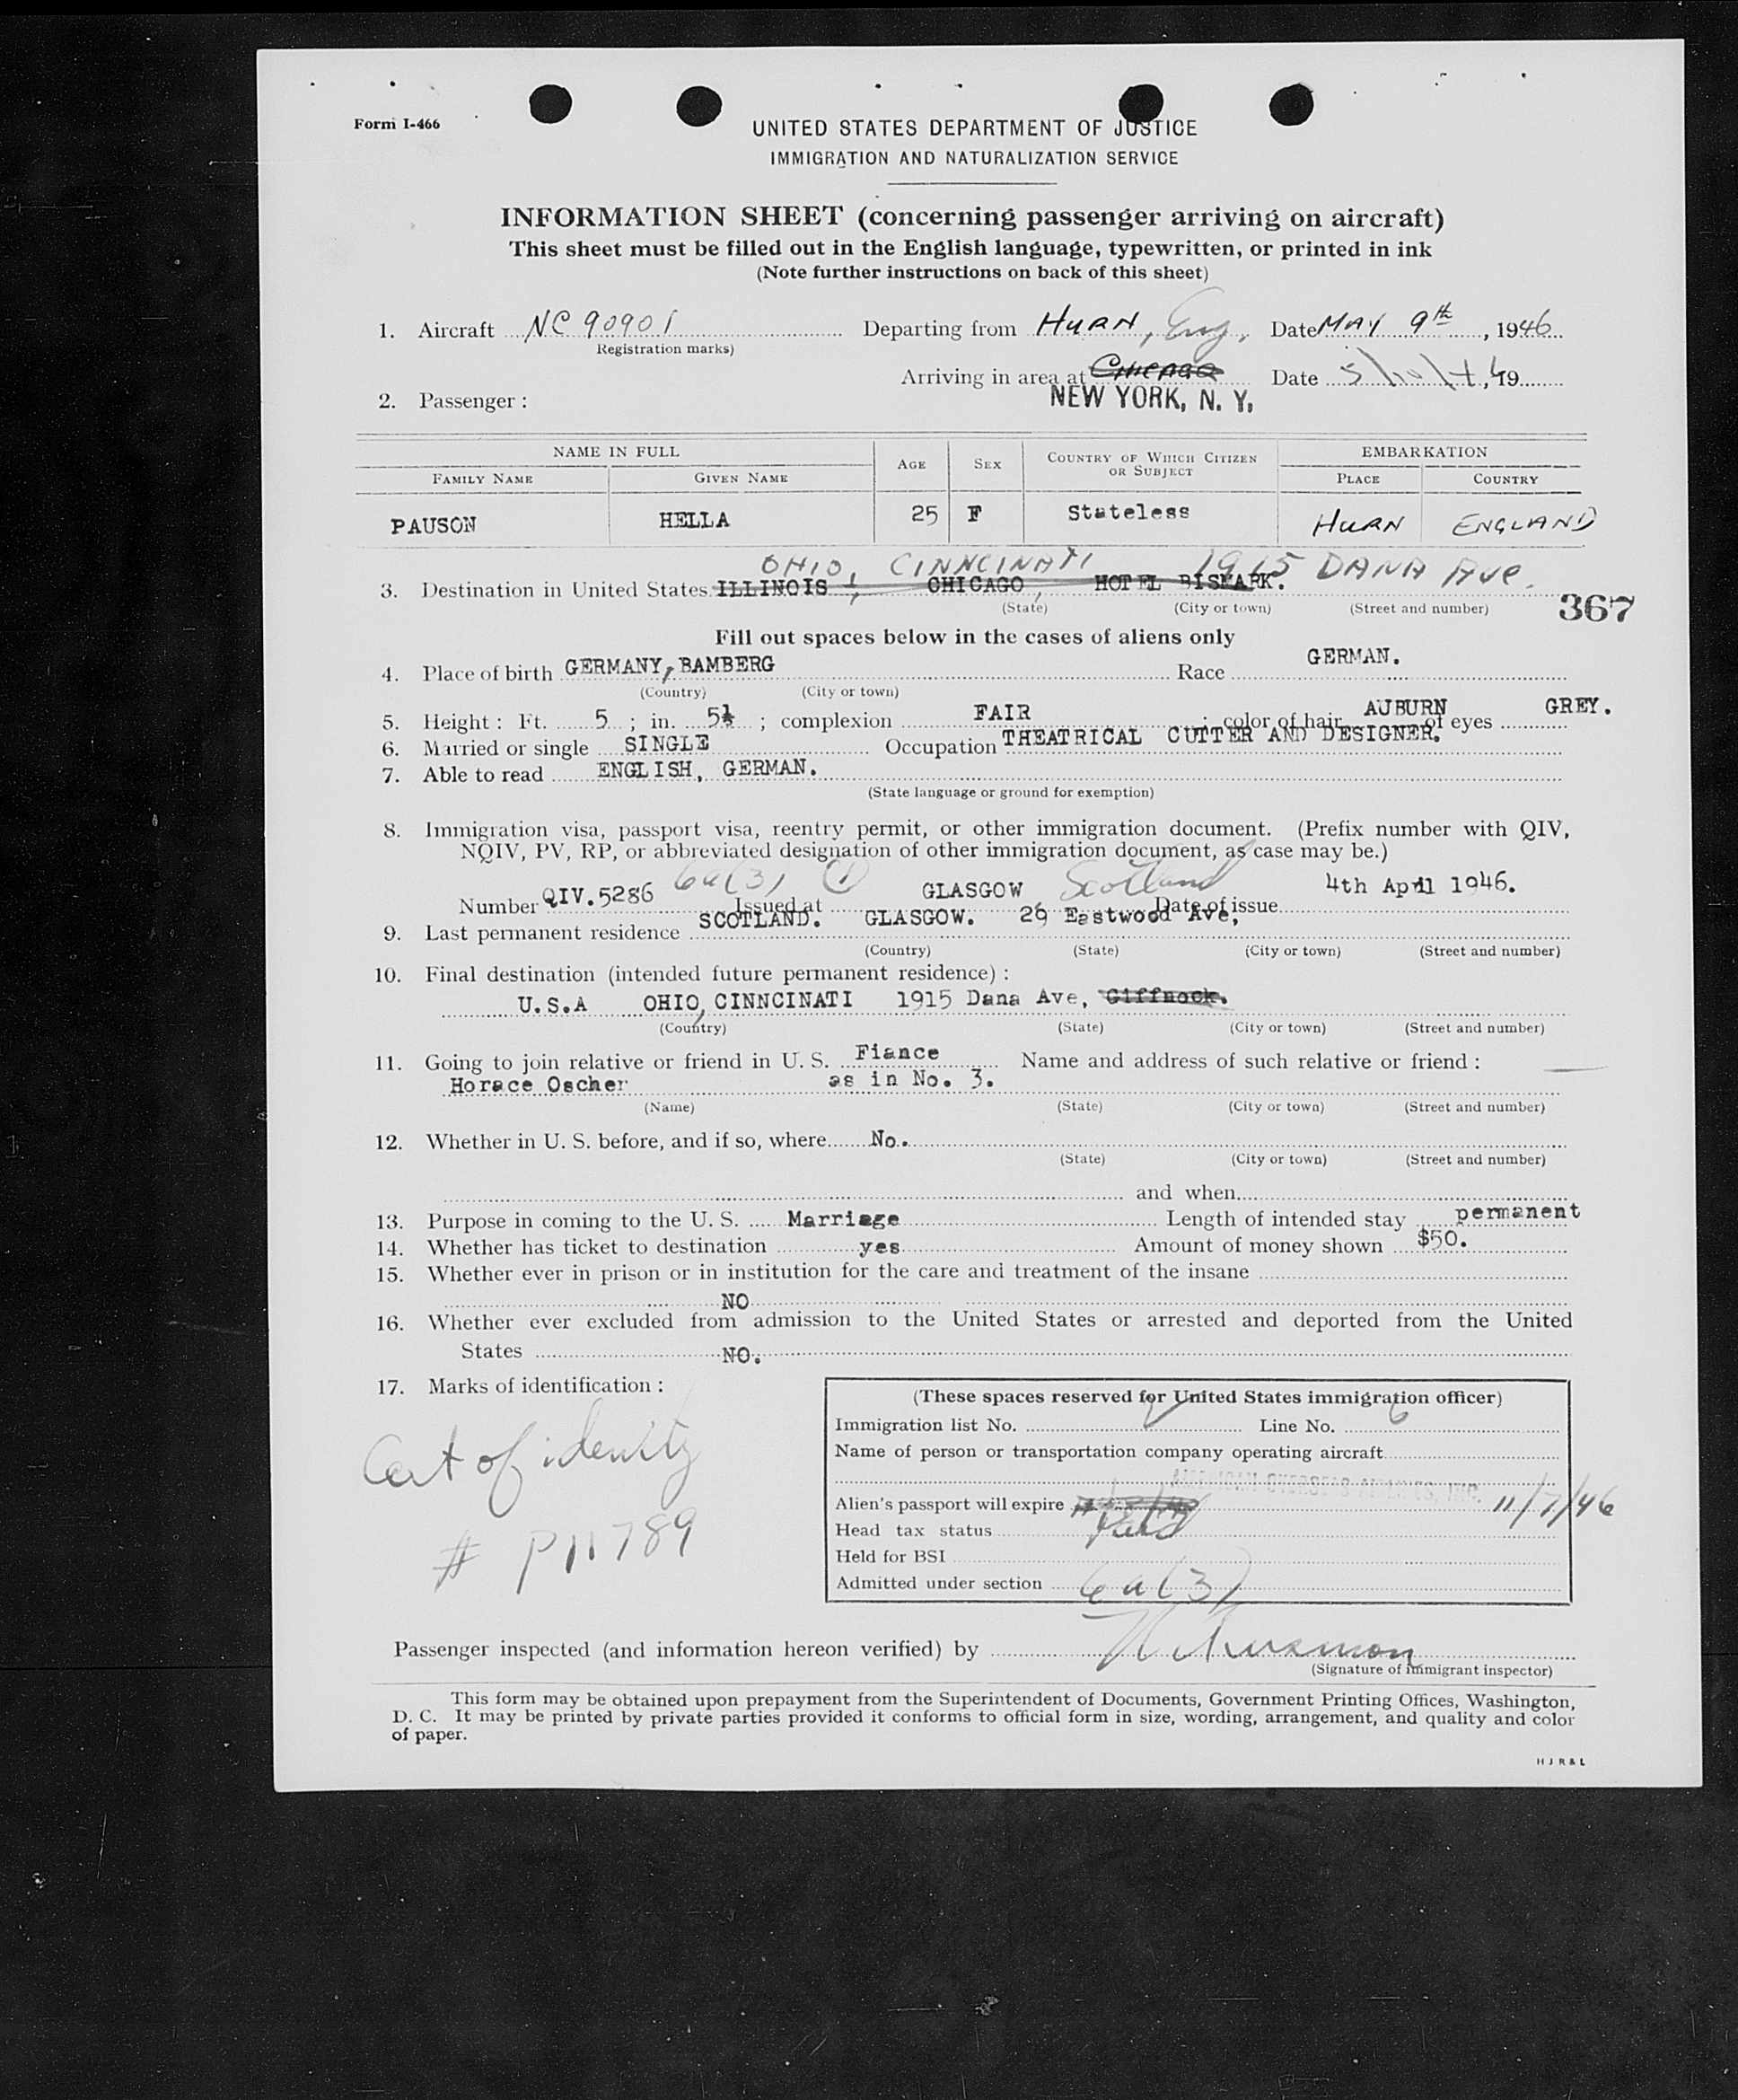 Form I-466
UNITED STATES DEPARTMENT OF JUSTICE
IMMIGRATION AND NATURALIZATION SERVICE
INFORMATION SHEET (concerning passenger arriving on aircraft)
This sheet must be filled out in the English language, typewritten, or printed in ink
(Note further instructions on back of this sheet)
1. Aircraft NC 90901 Departing from HURN, Eng, Date MAY 9th, 1946
(Registration marks)
Arriving in area at CHICAGO Date , 19
NEW YORK, N. Y.
2. Passenger :
NAME IN FULL AGE SEX COUNTRY OF WHICH CITIZEN OR SUBJECT EMBARKATION
FAMILY NAME GIVEN NAME PLACE COUNTRY
PAUSON HELLA 25 F Stateless HURN ENGLAND
OHIO, CINNCINATI 1915 DANA Ave.
3. Destination in United States ILLINOIS, CHICAGO, HOTEL BISMARK.
(State) (City or town) (Street and number)
367
Fill out spaces below in the cases of aliens only
4. Place of birth GERMANY, BAMBERG Race GERMAN.
(Country) (City or town)
5. Height : Ft. 5 ; in. 5½ ; complexion FAIR ; color of hair AUBURN of eyes GREY.
6. Married or single SINGLE Occupation THEATRICAL CUTTER AND DESIGNER.
7. Able to read ENGLISH, GERMAN.
(State language or ground for exemption)
8. Immigration visa, passport visa, reentry permit, or other immigration document. (Prefix number with QIV,
NQIV, PV, RP, or abbreviated designation of other immigration document, as case may be.)
6a(3) 1
Number QIV. 5286 Issued at GLASGOW Scotland Date of issue 4th April 1946.
9. Last permanent residence SCOTLAND. GLASGOW. 26 Eastwood Ave,
(Country) (State) (City or town) (Street and number)
10. Final destination (intended future permanent residence) :
U.S.A OHIO, CINNCINATI 1915 Dana Ave, Giffnock.
(Country) (State) (City or town) (Street and number)
11. Going to join relative or friend in U. S. Fiance Name and address of such relative or friend :
Horace Oscher as in No. 3.
(Name) (State) (City or town) (Street and number)
12. Whether in U. S. before, and if so, where No.
(State) (City or town) (Street and number)
and when
13. Purpose in coming to the U. S. Marriage Length of intended stay permanent
14. Whether has ticket to destination yes Amount of money shown $50.
15. Whether ever in prison or in institution for the care and treatment of the insane
NO
16. Whether ever excluded from admission to the United States or arrested and deported from the United
States NO.
17. Marks of identification :
Cert of idenity
# P11789
(These spaces reserved for United States immigration officer)
Immigration list No. Line No. 6
Name of person or transportation company operating aircraft
AMERICAN OVERSEAS AIRLINES, INC.
Alien's passport will expire 11/7/46
Head tax status Paid
Held for BSI
Admitted under section 6a(3)
Passenger inspected (and information hereon verified) by
(Signature of immigrant inspector)
This form may be obtained upon prepayment from the Superintendent of Documents, Government Printing Offices, Washington,
D. C. It may be printed by private parties provided it conforms to official form in size, wording, arrangement, and quality and color
of paper.
H J R & L